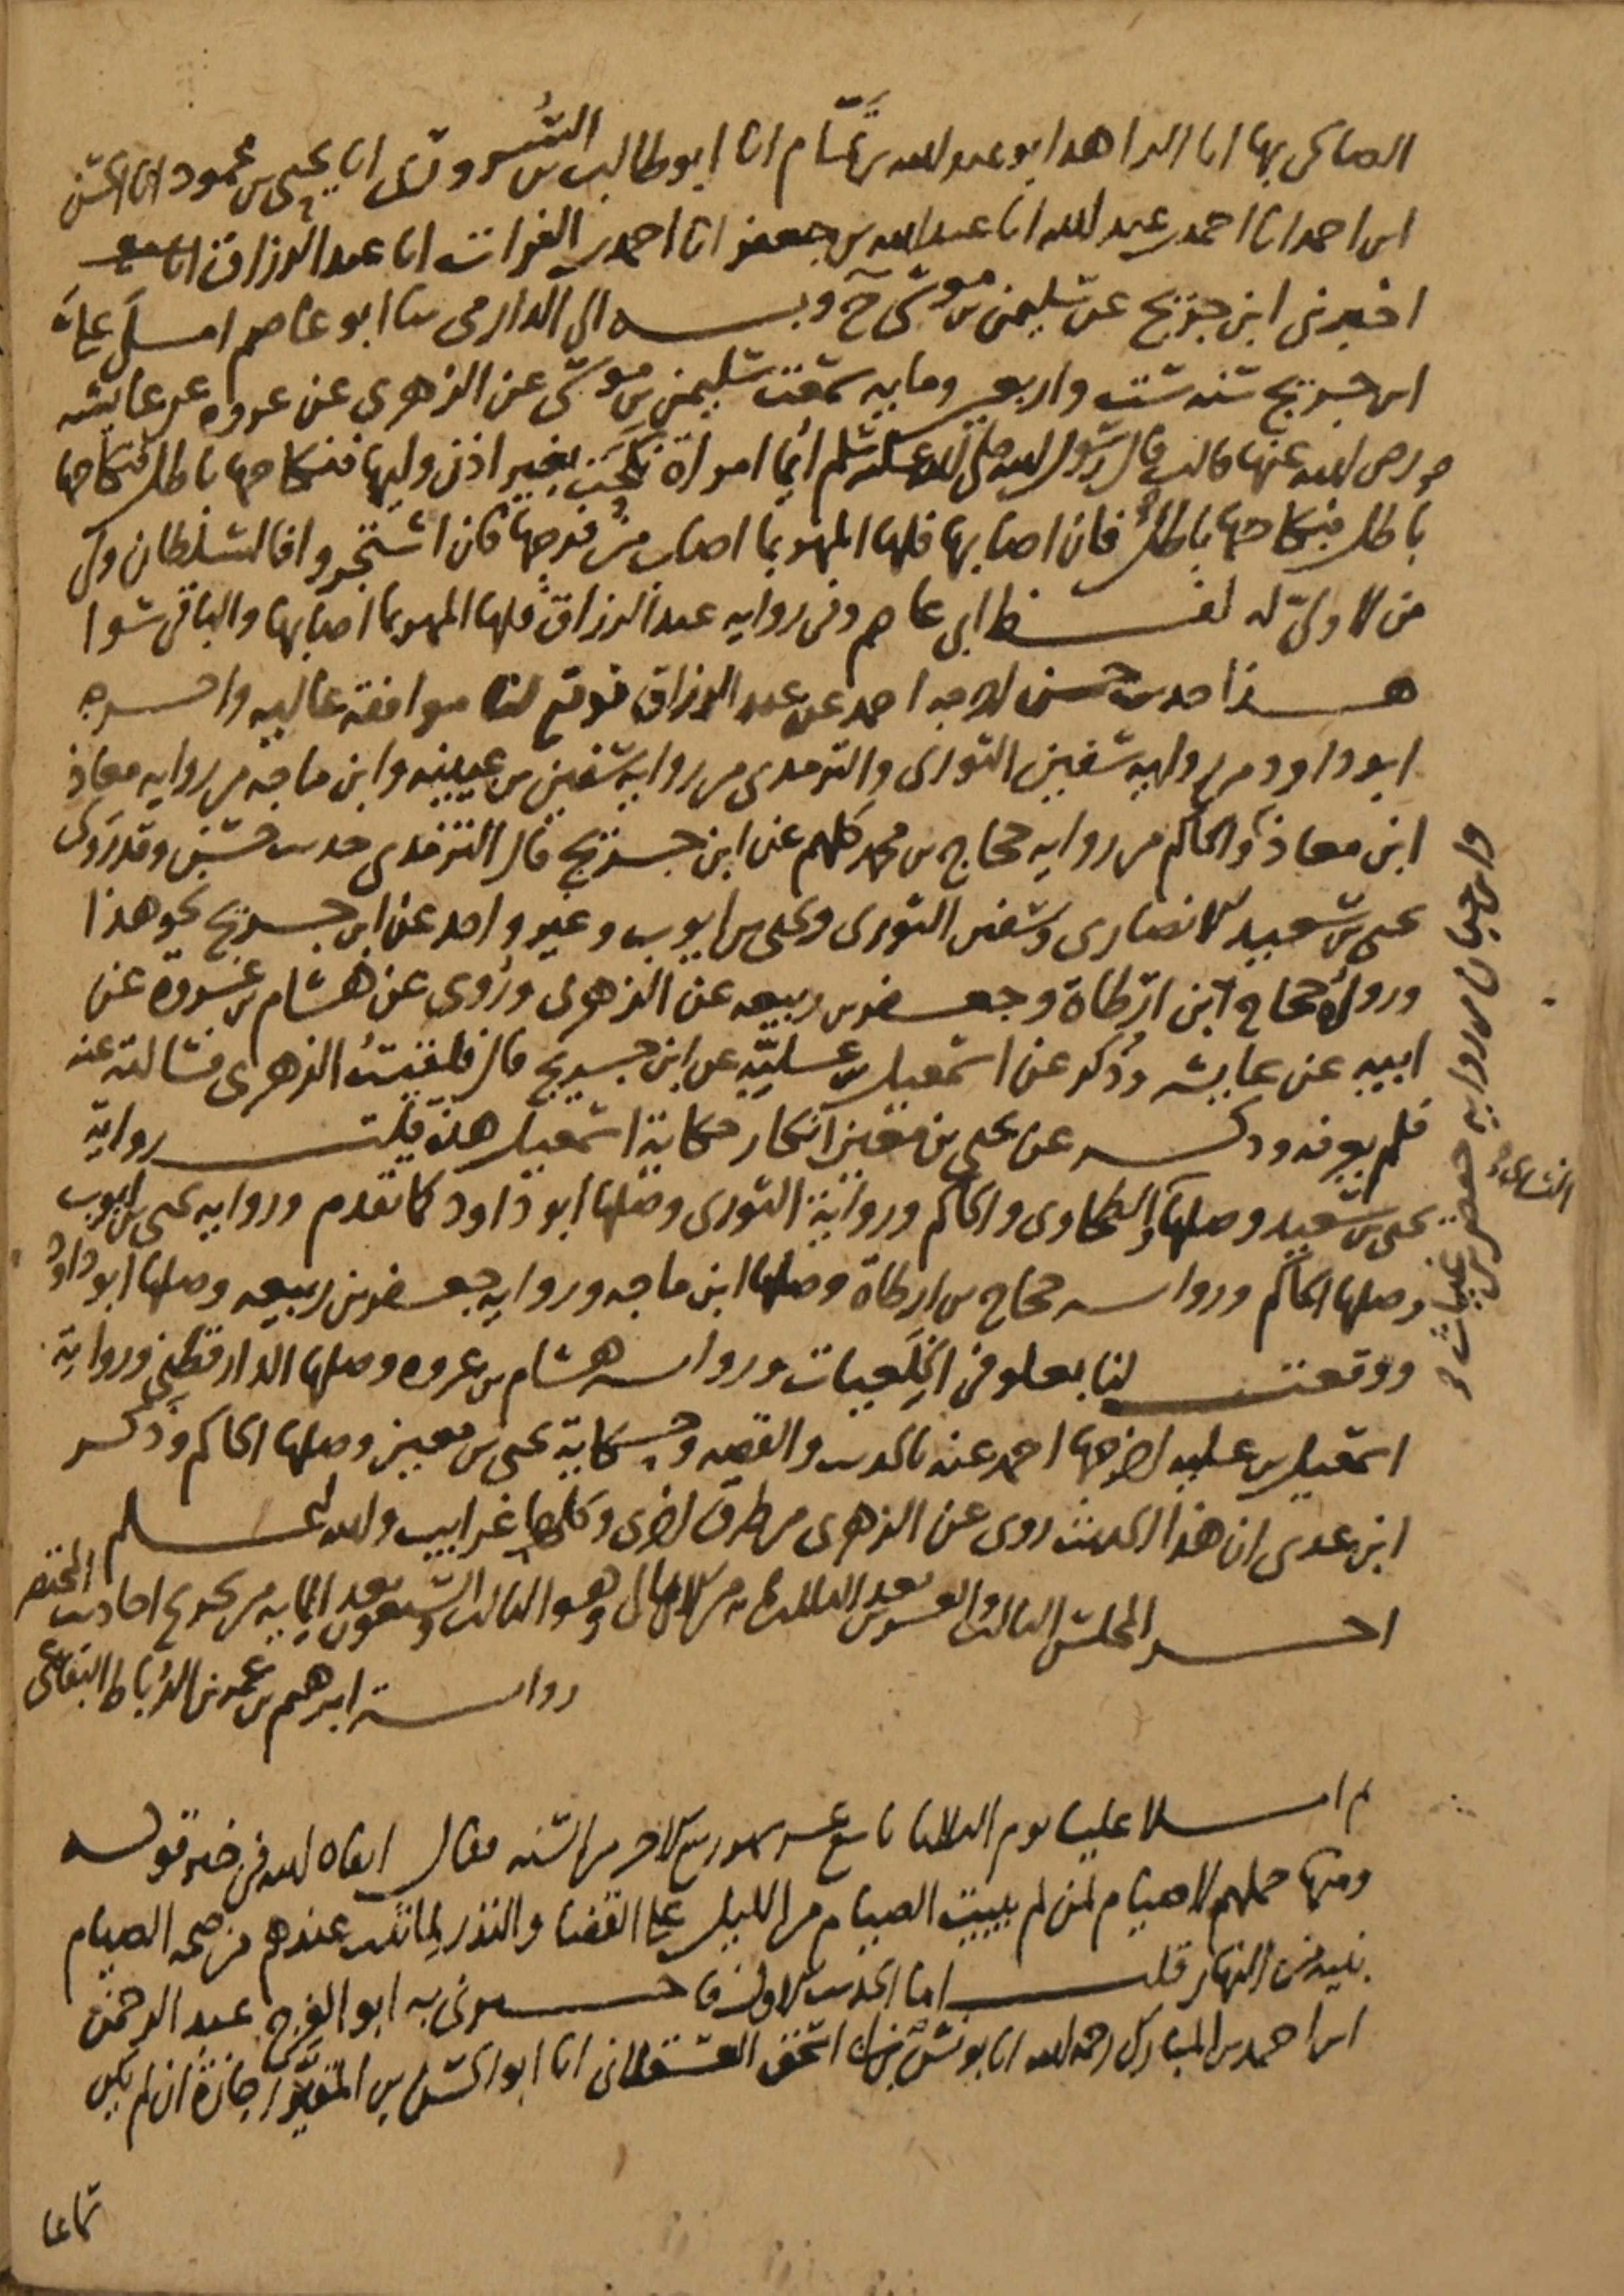 الصالحي بها انا الزاهد ابو عبد الله بن تمام انا ابو طالب بن السروري انا يحيى بن محمود انا الحسن
ابن احمد انا احمد بن عبد الله انا عبد الله بن جعفر انا احمد بن الفرات انا عبد الرزاق انا
اخبرني ابن جريج عن سليمن بن موسى ح وبه الى الدارمي ثنا ابو عاصم املى علينا
ابن جريج سنه ست واربعين ومايه سمعت سليمن بن موسى عن الزهري عن عروه عن عايشه
رضي الله عنها قالت قال رسول الله صلى الله عليه وسلم ايما امراة نكحت بغير اذن وليها فنكاحها باطل فنكاحها
باطل فنكاحها باطل فان اصابها فلها المهر بما اصاب من فرجها فان اشتجروا فالسلطان ولي
من لا ولي له لفظ ابي عاصم وفي روايه عبد الرزاق فلها المهر بما اصابها والباقي سوا
هذا حديث حسن اخرجه احمد عن عبد الرزاق فوقع لنا موافقة عاليه واخرجه
ابو داود من روايه سفين الثوري والترمذي من روايه سفين بن عيينه وابن ماجه من روايه معاذ
ابن معاذ والحاكم من روايه حجاج بن محمد كلهم عن ابن جريج قال الترمذي حديث حسن وقد روى
يحيى بن سعيد الانصاري وسفين الثوري ويحيى بن ايوب وغير واحد عن ابن جريج نحو هذا
ورواه حجاج ابن ارطاة وجعفر بن ربيعه عن الزهري وروي عن هشام بن عروة عن
ابيه عن عايشه وذكر عن اسمعيل بن علية عن ابن جريج قال فلقيت الزهري فسالته عنه
فلم يعرفه وذكر عن يحيى بن معين انكار حكاية اسمعيل هذه قلت رواية
يحيى بن سعيد وصلها الطحاوي والحاكم ورواية الثوري وصلها ابو داود كما تقدم وروايه يحيى بن ايوب
وصلها الحاكم وروايه حجاج بن ارطاة وصلها ابن ماجه وروايه جعفر بن ربيعه وصلها ابو داود
ووقعت لنا بعلو في الخلعيات وروايه هشام بن عروه وصلها الدارقطني ورواية
اسمعيل بن عليه اخرجها احمد عنه بالحديث والقصه وحكاية يحيى بن معين وصلها الحاكم وذكر
ابن عدي ان هذا الحديث روي عن الزهري من طرق اخرى وكلها غرايب والله اعلم
اخر المجلس الثالث والعشرين بعد الثلاثمايه من الامالي وهو الثالث والتسعون بعد المايه من تخريج احاديث المختصر
روايه ابرهيم بن عمر بن الرباط البقاعي
ثم املا علينا يوم الثلاثا تاسع عشر شهر ربيع الاخر من السنه فقال ابقاه الله في خير قوله
ومنها حملهم لا صيام لمن لم يبيت الصيام من الليل على القضا والنذر لما ثبت عندهم من صحه الصيام
بنيه من النهار قلت اما الحديث الاول فاخبرني به ابو الفرج عبد الرحمن
ابن احمد بن المبارك رحمه الله انا يونس بن اسحق العسقلاني انا ابو الحسن بن المقير اجازة ان لم يكن
سماعا
وابن حبان من روايه حفص بن غياث و
النساي